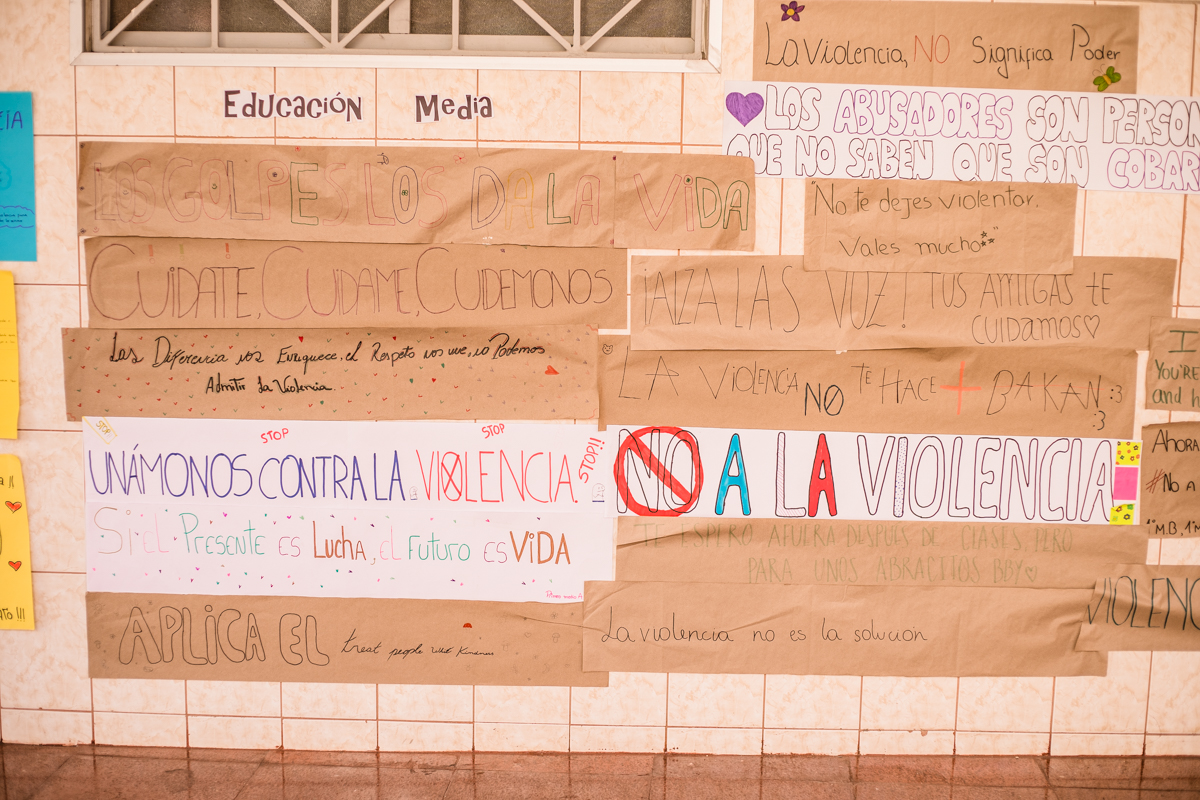 Educación Media
LOS GOLPES LOS DA LA ViDA
CUiDATE, CUiDAME, CUiDEMONOS
Las Diferencia nos Enriquece, el Respeto nos une, no Podemos
Admitir La Violencia.
STOP
STOP
STOP
STOP!!
UNÁMONOS CONTRA LA VIOLENCIA.
Si el Presente es Lucha, el Futuro es ViDA
APLiCA EL treat people with Kindness
La violencia, NO Significa Poder
LOS ABUSADORES SON PERSON
QUE NO SABEN QUE SON COBAR
"No te dejes violentar.
Vales mucho"
¡AZA LAS VOZ! TUS AMIGAS tE
CUiDAMOS
LA ViOLENCIA NO TE HACE + BAKAN :3
:3
NO A LA VIOLENCIA
TE ESPERO AFUERA DESPUES DE CLASES PERO
PARA UNOS ABRACITOS BBY
La violencia no es la solución
I
YOU'RE
and h
AHORA
#No A
"M.B, 1°M
VIOLENC